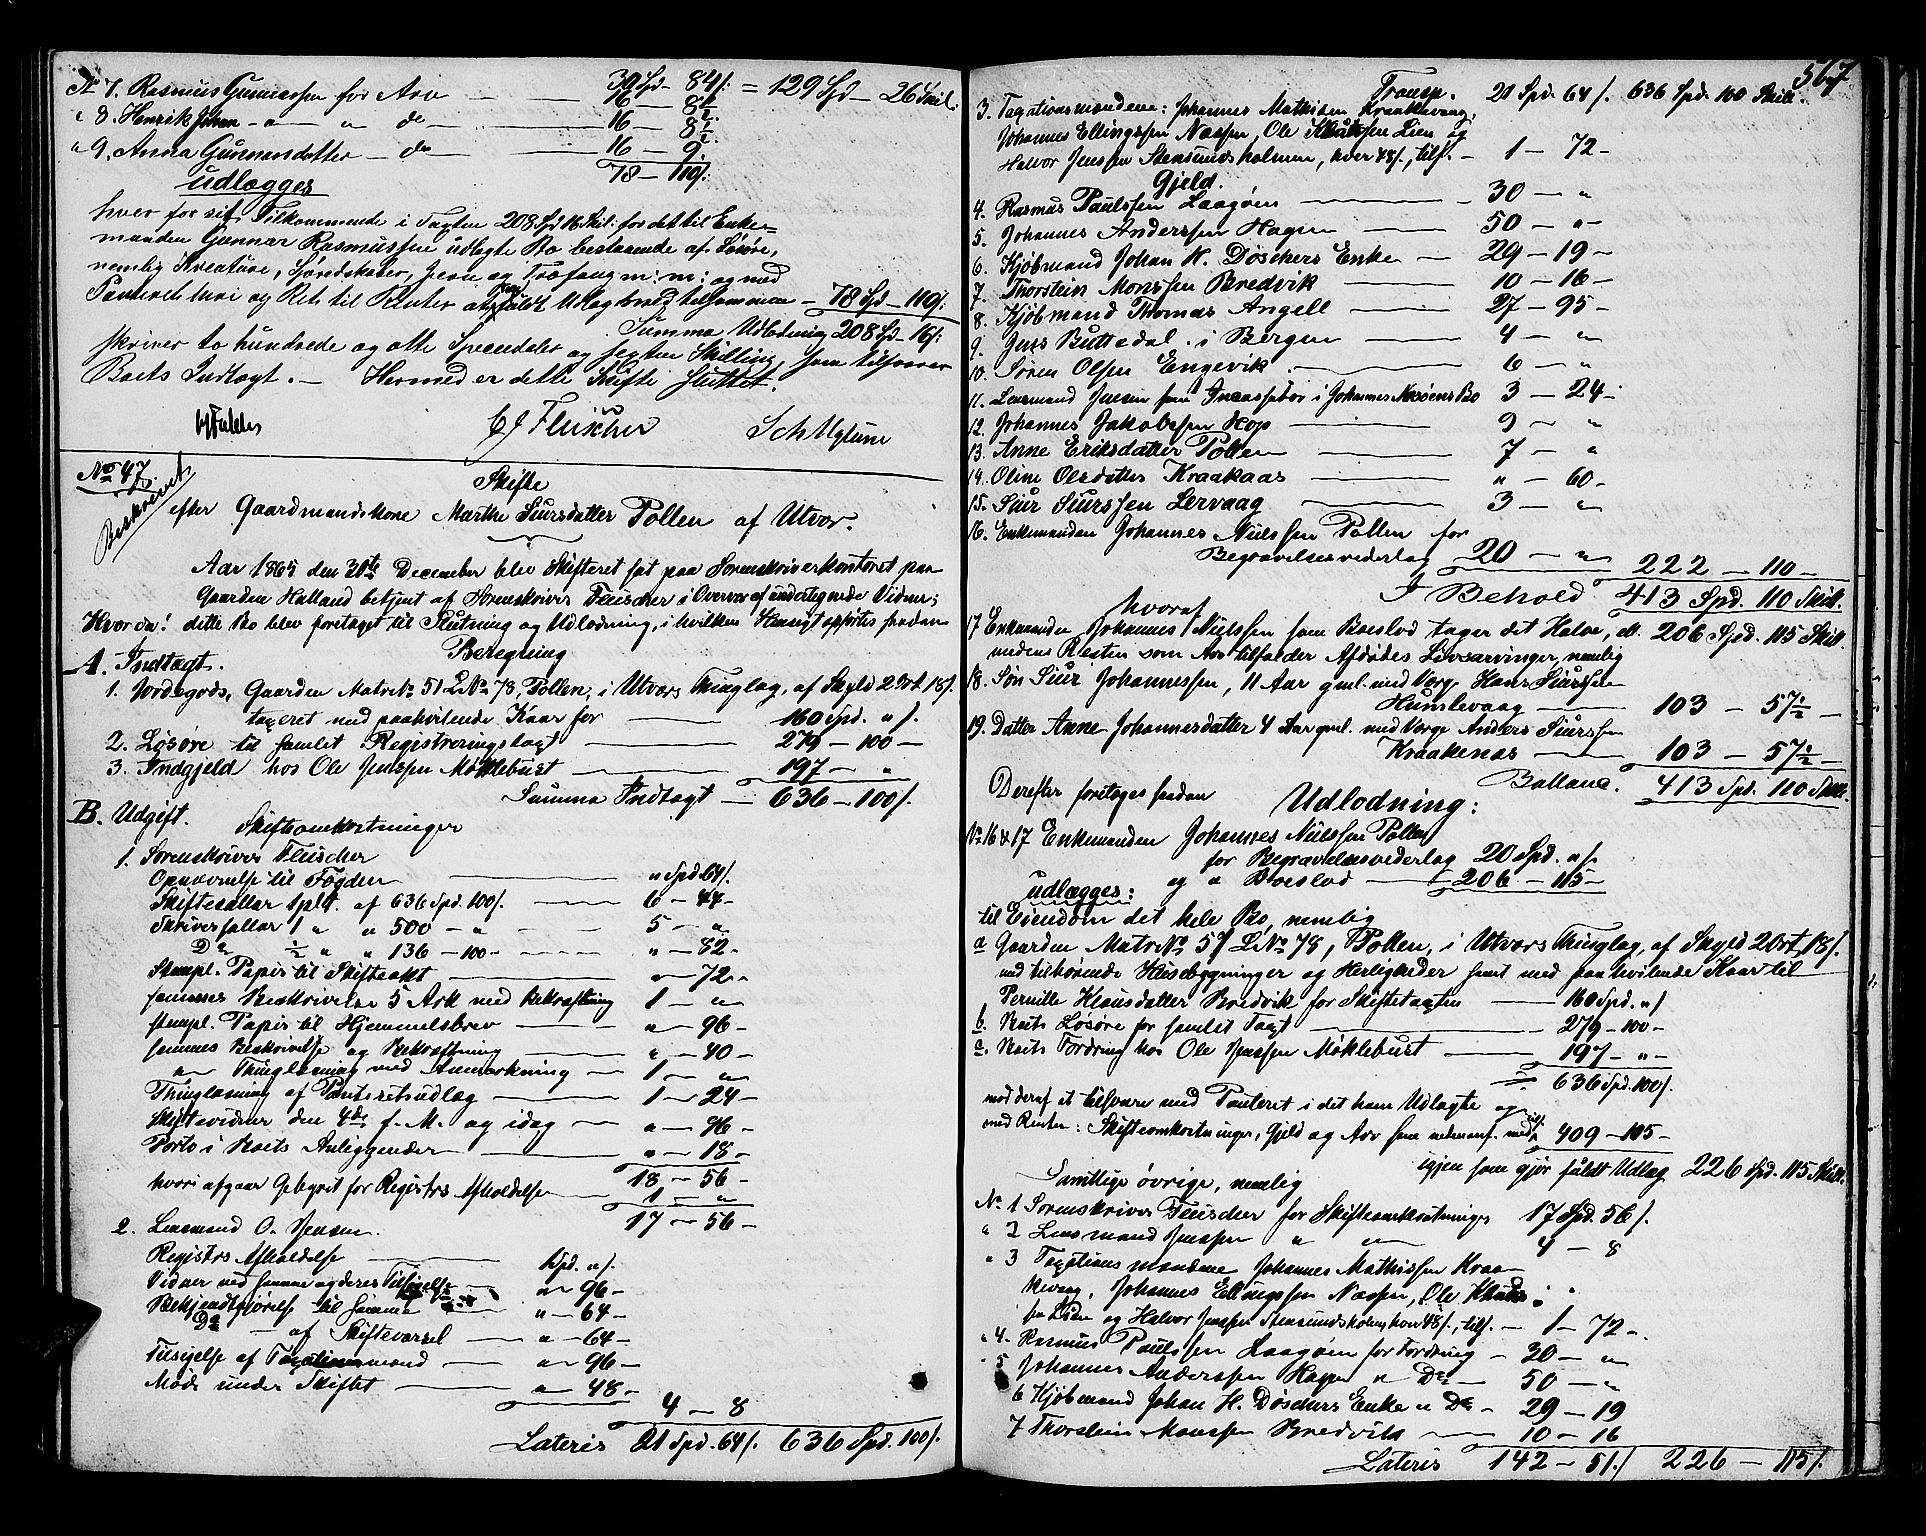 No 7. Rasmus Gunnarssen for Arv — 39 Spd — 84 s. = 129 Spd — 26 Skil.
" 8. Henrik — " — " do — 16 — 8½
" 9. Anna Gunnarsdatter — do — 16 — 9.
78 — 110 s.
udlægges
hver for sit Tilkommende i Taxten 208 Spd 16 Skil. for det til Enke=
manden Gunnar Rasmussen udlagte Bo bestaaende af Løsøre,
nemlig Kreature, Gaardredskaber, Jern og Træfang m: m: og med
Panteret heri og Ret til Renter fuldt Udlag hved tilsammen — 78 Spd — 110 s.
Summa Udlodning 208 Spd — 16 s.
skriver to hundrede og otte Speciedaler og sexten Skilling, som tilsvarer
Boets Indtægt. — Hermed er dette Skifte sluttet.
CJ Fleischer
No 47
Beskrevet
Skifte
efter Gaardmandskone Marthe Siursdatter Pollen af Utvær.
Aar 1865 den 30te December blev Skifteret sat paa Sorenskriverkontoret paa
Gaarden Halland betjent af Sorenskriver Fleischer i Overvær af undertegnede Vidner;
Hvor da! dette Bo blev foretaget til Slutning og Udlodning, i hvilken Hensigt opførtes saadan
Beregning
A. Indtægt.
1. Jordegods, Gaarden Matr No 51 L No 78, Pollen, i Utværs Thinglag, af Skyld 2 Ort 18 s.
taxeret med paahvilende Kaar for — 160 Spd. " s.
2. Løsøre til samlet Registreringstaxt — 279 — 100 —
3. Indgjeld hos Ole Jenssen Møklebust — 197 — "
Summa Indtægt — 636 — 100 s.
B. Udgift.
Skifteomkostninger
1. Sorenskriver Fleischer
Opnævnelse til Fogden — " Spd 64 s.
Skiftesallær 1 pCt. af 636 Spd. 100 s. — 6 — 44 —
Skriversallær 1 " " 500 — " — 5 — "
Do ½ " " 136 — 100 — " — 82 —
Stempl. Papir til Skifteakt — " — 72 —
sammes Beskrivelse 5 Ark med Bekræftning 1 — "
stempl. Papir til Hjemmelsbrev — " — 96 —
sammes Beskrivelse og Bekræftning — " — 40 —
" Thinglæsning med Anmærkning — 1 — "
Thinglæsning af Panteretsudlæg — 1 — 24
Skiftevidner den 4de f. M. og idag — " — 96 —
Porto i Boets Anliggender — " — 18 —
18 — 56 —
hvori afgaar Gebyret for Registrs Afholdelse 1 — "
17 — 56 —
2. Lensmand O. Jensen.
Registrs Afholdelse — 1 Spd. " s.
Vidner ved samme og deres Tilsigelse — " — 96 —
Bekjendtgjørelse til samme — " — 64 —
Do — af Skiftevarsel — " — 64 —
Tilsigelse af Taxationsmænd — " — 96 —
Møde under Skiftet — " — 48 —
4 — 8
Lateris 21 Spd. 64 s. 636 Spd. 100 s.
567
Transp. 21 Spd. 64 s. 636 Spd. 100 Skill.
3. Taxationsmændene: Johannes Mathissen Kraakevaag,
Johannes Ellingssen Næssen, Ole Lien og
Halvor Jenssen Stensundsholmen, hver 48 s., tils. — 1 — 72 —
Gjeld.
4. Rasmus Paulssen Laagøen — 30 — "
5. Johannes Anderssen Hagen — 50 — "
6. Kjøbmand Johan H. Døschers Enke — 29 — 19 —
7. Thorstein Monssen Bredvik — 10 — 16 —
8. Kjøbmand Thomas Angell — 27 — 95 —
9. Jens Buttedal i Bergen — 4 — "
10. Søren Olsen Engevik — 6 — "
11. Lensmand Jensen som Incassator i Johannes Bo 3 — 24 —
12. Johannes Jakobssen Hop — 9 — "
13. Anne Eriksdatter Pollen — 7 — "
14. Oline Olsdatter Kraakaas " — 60 —
15. Siur Siurssen Lervaag — 3 — "
16. Enkemanden Johannes Nielssen Pollen for
Begravelsesvederlag 20 — " 222 — 110 —
I Behold 413 Spd. 110 Skill.
hvoraf
17 Enkemanden Johannes Nielssen som Boeslod tager det Halve, el. 206 Spd. 115 Skill.
medens Resten som Arv tilfalder Afdødes Livsarvinger, nemlig
18. Søn Siur Johannessen, 11 Aar gml. med Verge Hans Siurssen
Humlevaag — 103 — 57½ —
19. Datter Anne Johannesdatter 4 Aar gml. med Verge Anders Siurssen
Kraakenæs — 103 — 57½ —
Ballance. 413 Spd. 110 Skill.
Derefter foretoges saadan Udlodning:
No 16 & 17 Enkemanden Johannes Nielssen Pollen
for Begravelsesvederlag 20 Spd. " s.
og " Boeslod — 206 — 115 —
udlægges:
til Eiendom det hele Bo, nemlig
a Gaarden Matr No 51 L No 78, Pollen, i Utværs Thinglag, af Skyld 2 Ort 18 s.
med tilhørende Husebygninger og Herligheder samt med paahvilende Kaar til
Pernille Klausdatter Bredvik for Skiftetaxten — 160 Spd. " s
b. Boets Løsøre for samlet Taxt — 279 — 100 —
c. Boets Fordring hos Ole Jenssen Møklebust — 197 — " —
= 636 Spd. 100 s.
mod deraf at tilsvare med Panteret i det ham Udlagte og
med Renter: Skifteomkostninger, Gjeld og Arv som nedenanf. med 409 — 105 —
igjen som gjør fuldt Udlæg 226 Spd. 115 Skill.
Samtlige øvrige, nemlig
No 1 Sorenskriver Fleischer for Skifteomkostninger 17 Spd. 56 s.
" 2 Lensmand Jenssen " " — 4 — 8
" 3 Taxationsmændene Johannes Mathissen Kraa-
kevaag, Johannes Ellingssen Næssen, Ole
Lien og Halvor Jenssen Stensundsholm, hver 48 s., tils. — 1 — 72 —
" 4. Rasmus Paulssen Laagøen for Fordring — 30 — "
" 5 Johannes Anderssen Hagen " Do — 50 — "
6 Kjøbmand Johan H. Døschers Enke " Do — 29 — 19
7 Thorstein Monssen Bredvik — 10 — 16
Lateris 142 — 51 s. 226 — 115 s.